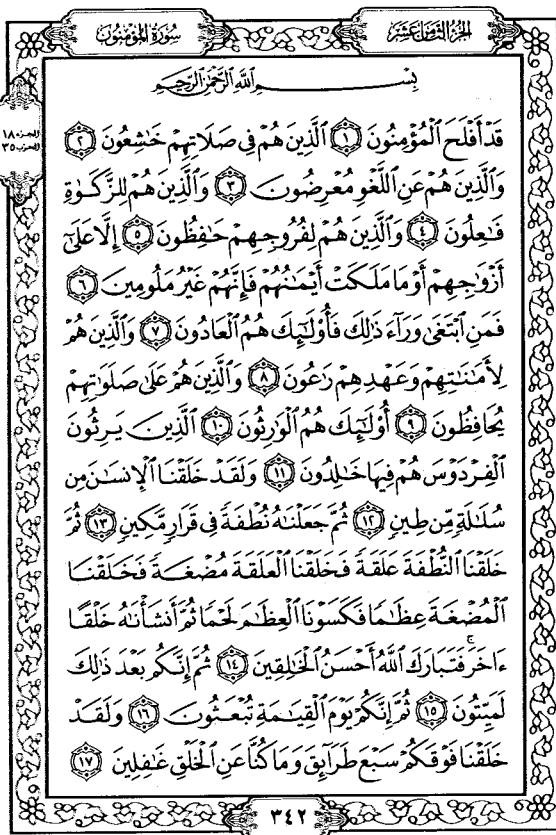 سُورَةُ المُؤْمِنُونَ
الجُزْءُ الثَّامِنَ عَشَرَ
الجزء ١٨
الحزب ٣٥
بِسْمِ اللَّهِ الرَّحْمَٰنِ الرَّحِيمِ
قَدْ أَفْلَحَ ٱلْمُؤْمِنُونَ ١ ٱلَّذِينَ هُمْ فِى صَلَاتِهِمْ خَٰشِعُونَ ٢
وَٱلَّذِينَ هُمْ عَنِ ٱللَّغْوِ مُعْرِضُونَ ٣ وَٱلَّذِينَ هُمْ لِلزَّكَوٰةِ
فَٰعِلُونَ ٤ وَٱلَّذِينَ هُمْ لِفُرُوجِهِمْ حَٰفِظُونَ ٥ إِلَّا عَلَىٰٓ
أَزْوَٰجِهِمْ أَوْ مَا مَلَكَتْ أَيْمَٰنُهُمْ فَإِنَّهُمْ غَيْرُ مَلُومِينَ ٦
فَمَنِ ٱبْتَغَىٰ وَرَآءَ ذَٰلِكَ فَأُو۟لَٰٓئِكَ هُمُ ٱلْعَادُونَ ٧ وَٱلَّذِينَ هُمْ
لِأَمَٰنَٰتِهِمْ وَعَهْدِهِمْ رَٰعُونَ ٨ وَٱلَّذِينَ هُمْ عَلَىٰ صَلَوَٰتِهِمْ
يُحَافِظُونَ ٩ أُو۟لَٰٓئِكَ هُمُ ٱلْوَٰرِثُونَ ١٠ ٱلَّذِينَ يَرِثُونَ
ٱلْفِرْدَوْسَ هُمْ فِيهَا خَٰلِدُونَ ١١ وَلَقَدْ خَلَقْنَا ٱلْإِنسَٰنَ مِن
سُلَٰلَةٍ مِّن طِينٍ ١٢ ثُمَّ جَعَلْنَٰهُ نُطْفَةً فِى قَرَارٍ مَّكِينٍ ١٣ ثُمَّ
خَلَقْنَا ٱلنُّطْفَةَ عَلَقَةً فَخَلَقْنَا ٱلْعَلَقَةَ مُضْغَةً فَخَلَقْنَا
ٱلْمُضْغَةَ عِظَٰمًا فَكَسَوْنَا ٱلْعِظَٰمَ لَحْمًا ثُمَّ أَنشَأْنَٰهُ خَلْقًا
ءَاخَرَ ۚ فَتَبَارَكَ ٱللَّهُ أَحْسَنُ ٱلْخَٰلِقِينَ ١٤ ثُمَّ إِنَّكُم بَعْدَ ذَٰلِكَ
لَمَيِّتُونَ ١٥ ثُمَّ إِنَّكُمْ يَوْمَ ٱلْقِيَٰمَةِ تُبْعَثُونَ ١٦ وَلَقَدْ
خَلَقْنَا فَوْقَكُمْ سَبْعَ طَرَآئِقَ وَمَا كُنَّا عَنِ ٱلْخَلْقِ غَٰفِلِينَ ١٧
٣٤٢